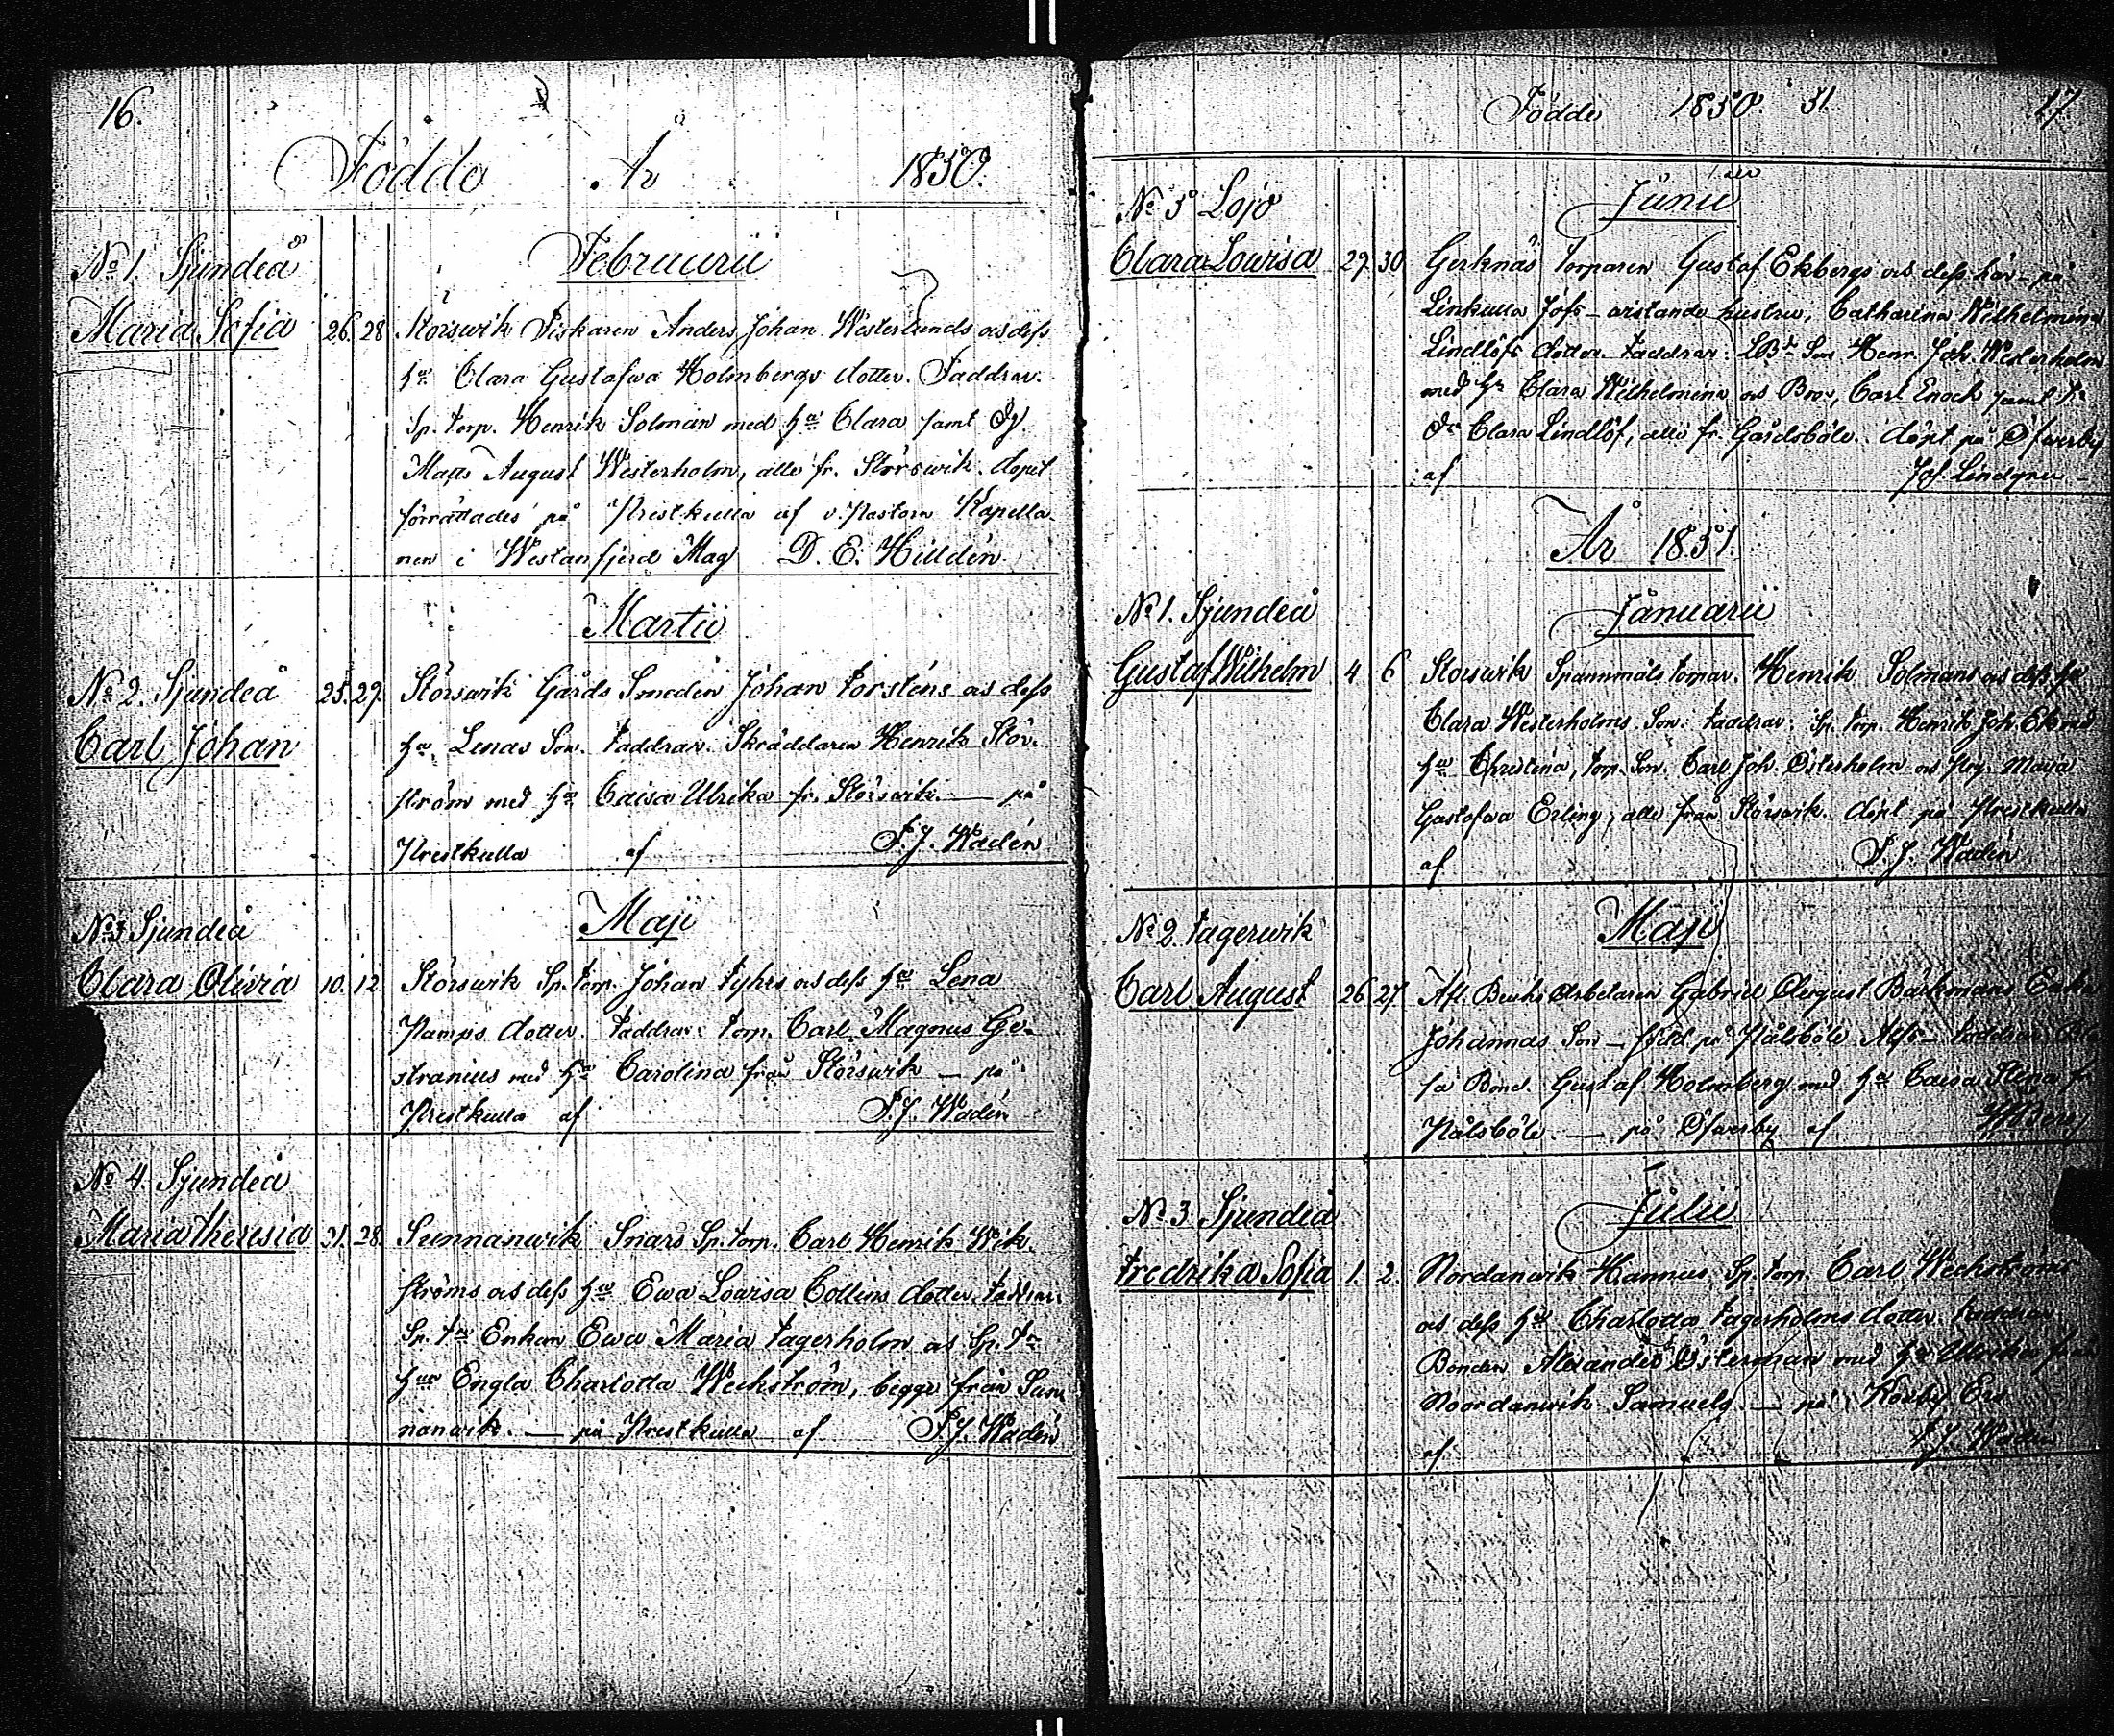 16.
Födde År 1850.
Februarii
No 1. Sjundeå
Maria Sofia 26. 28 Störswik Fiskaren Anders Johan Westerlunds o. dess
hu Clara Gustafwa Holmbergs dotter. Faddrar.
Sp. torp. Henrik Solman med hu Clara samt Dg.
Matts August Westerholm, alle fr. Störswik. Dopet
förrättades på Prestkulla af v. Pastorn Kapella-
nen i Westanfjerd Mag D. E. Hilldén
Martii
No 2. Sjundeå 25. 29. Störswik Gårds Smeden Johan Forsténs o. dess
Carl Johan hu Lenas Son. Faddrar. Skräddaren Henrik Stör-
ström med hu Caisa Ulrika fr. Störswik. — på
Prestkulla af F. J. Wadén
Maji
No 3 Sjundeå
Clara Olivia 10. 12 Störswik Sp. torp. Johan Fyhrs o. dess hu Lena
Kamps dotter. Faddrar: torp. Carl Magnus Ge-
stranius med hu Carolina från Störswik — på
Prestkulla af F. J. Wadén
No 4. Sjundeå
Maria Theresia 21. 28. Sunnanwik Snars Sp. torp. Carl Henrik Wik-
ströms o. dess hu Ewa Lowisa Collins dotter. Faddrar.
Sp. t. Enkan Ewa Maria Fagerholm o. Sp. t.
hu Engla Charlotta Weckström, begge från Sun-
nanwik. — på Prestkulla af F. J. Wadén
Födde 1850. 51. 17.
No 5 Lojo Junii
Clara Lowisa 29. 30 Gerknäs Torparen Gustaf Ekbergs o. dess här på
Linkulla wistande hustru, Catharina Wilhelmina
Lindlöfs dotter. Faddrar: Son Henr. Joh. Westerholm
med hu Clara Wilhelmina o. Carl Enoch samt
Clara Lindlöf, alle fr. Gårdsböle. Döpt på Öfwerby
af Lindgren
År 1851.
No 1. Sjundeå Januarii
Gustaf Wilhelm 4 6 Storswik Spannmåls torpar. Henrik Solmans o. dess hu
Clara Westerholms Son. Faddrar: Sp. torp. Henrik Joh. Ek med
hu Christina, torp. Son. Carl Joh. Österholm o. Maria
Gustafwa Erling, alle från Störswik. Döpt på Prestkulla
af F. J. Wadén
No 2. Fagerwik Maji
Carl August 26 27 Afl. Bruks Arbetaren Gabriel August Bäckmans Enka
Johannas Son — född på Pålsböle — Faddrar:
Bond. Gustaf Holmberg med hu Caisa Stina fr.
Pålsböle. — på Öfwerby af Berg
No 3 Sjundeå Julii
Fredrika Sofia 1. 2. Nordanwik Hannus Sp. torp. Carl Weckströms
o. dess hu Charlotta Fagerholms dotter. Faddrar
Bonden Alexander Österman med hu Ulrika från
Nordanwik Samuels. — på
af F. J. Wadén